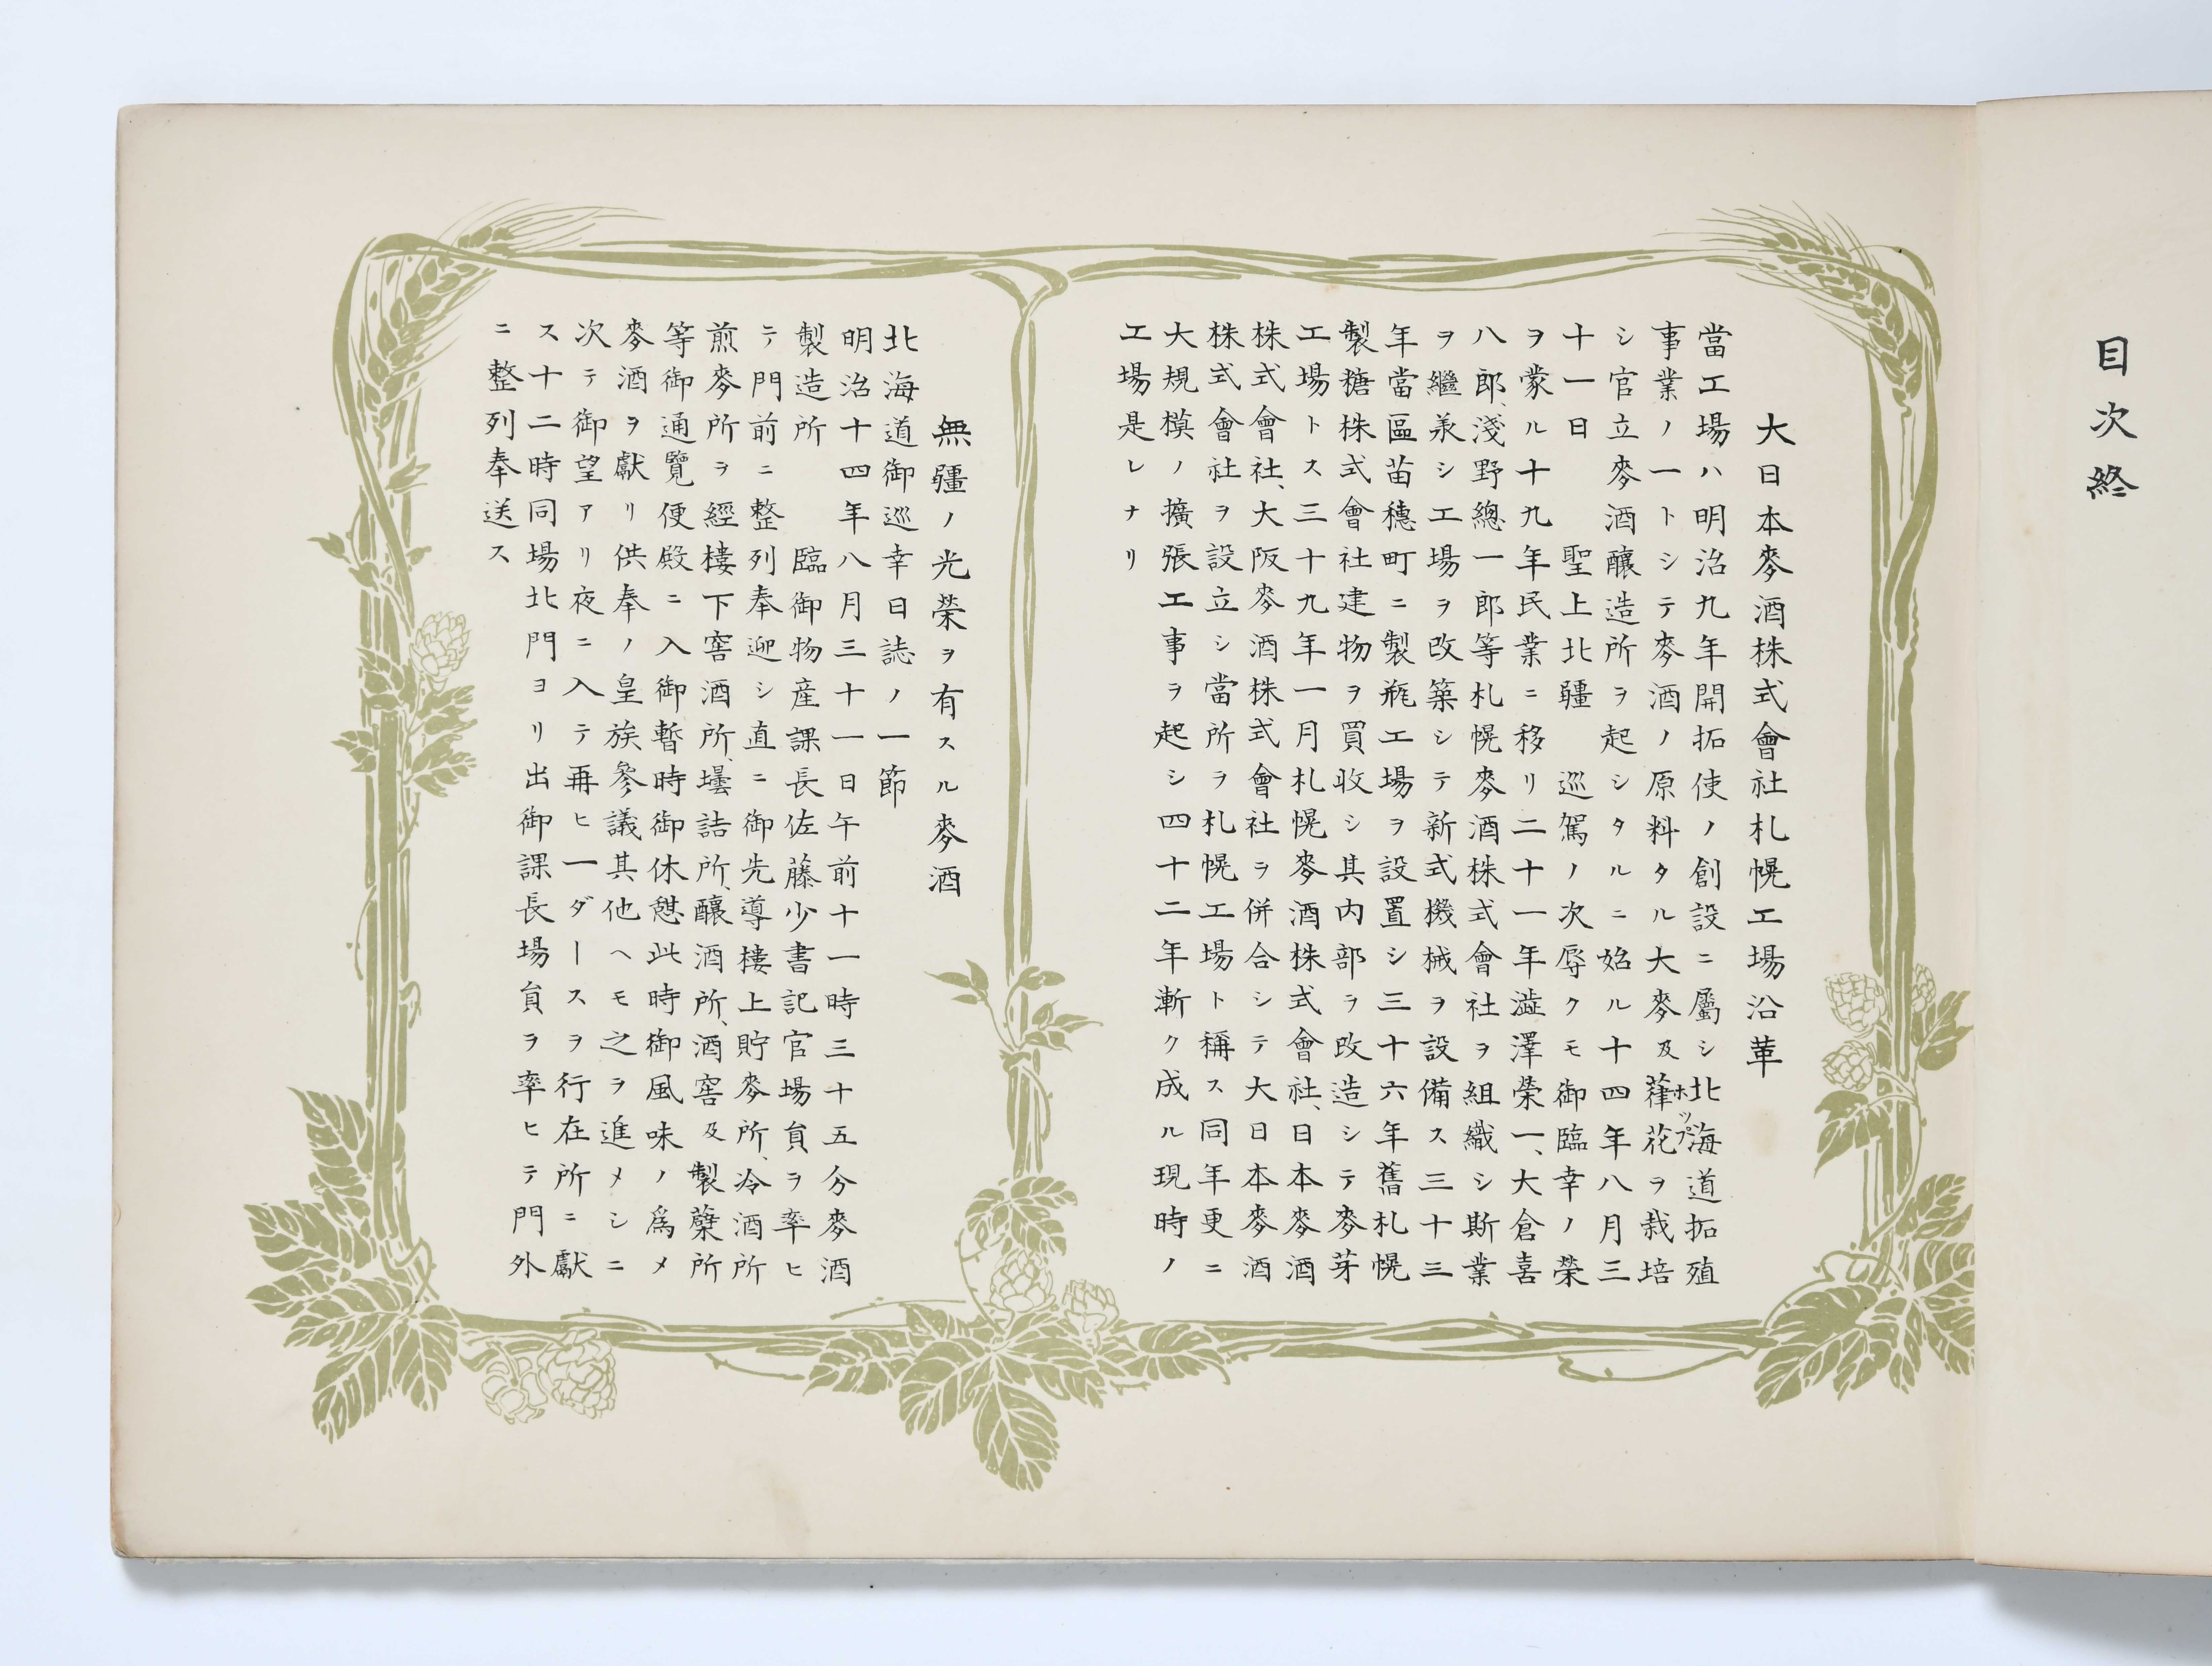 目次終
大日本麥酒株式會社札幌工場沿革
當工場ハ明治九年開拓使ノ創設ニ屬シ北海道拓殖
事業ノ一トシテ麥酒ノ原料タル大麥及葎花ヲ栽培
ホップ
シ官立麥酒釀造所ヲ起シタルニ始ル十四年八月三
十一日 聖上北疆 巡駕ノ次辱クモ御臨幸ノ榮
ヲ蒙ル十九年民業ニ移リ二十一年澁澤榮一、大倉喜
八郎、淺野總一郎等札幌麥酒株式會社ヲ組織シ斯業
ヲ繼承シ工場ヲ改築シテ新式機械ヲ設備ス三十三
年當區苗穗町ニ製瓶工場ヲ設置シ三十六年舊札幌
製糖株式會社建物ヲ買收シ其内部ヲ改造シテ麥芽
工場トス三十九年一月札幌麥酒株式會社、日本麥酒
株式會社、大阪麥酒株式會社ヲ併合シテ大日本麥酒
株式會社ヲ設立シ當所ヲ札幌工場ト稱ス同年更ニ
大規模ノ擴張工事ヲ起シ四十二年漸ク成ル現時ノ
工場是レナリ
無疆ノ光榮ヲ有スル麥酒
北海道御巡幸日誌ノ一節
明治十四年八月三十一日午前十一時三十五分麥酒
製造所 臨御物産課長佐藤少書記官場員ヲ率ヒ
テ門前ニ整列奉迎シ直ニ御先導樓上貯麥所、冷酒所
煎麥所ヲ經樓下窖酒所、壜詰所、釀酒所、酒窖及製蘖所
等御通覽便殿ニ入御暫時御休憩此時御風味ノ爲メ
麥酒ヲ獻リ供奉ノ皇族參議其他ヘモ之ヲ進メシニ
次テ御望アリ夜ニ入テ再ヒ一ダースヲ行在所ニ獻
ス十二時同場北門ヨリ出御課長場員ヲ率ヒテ門外
ニ整列奉送ス